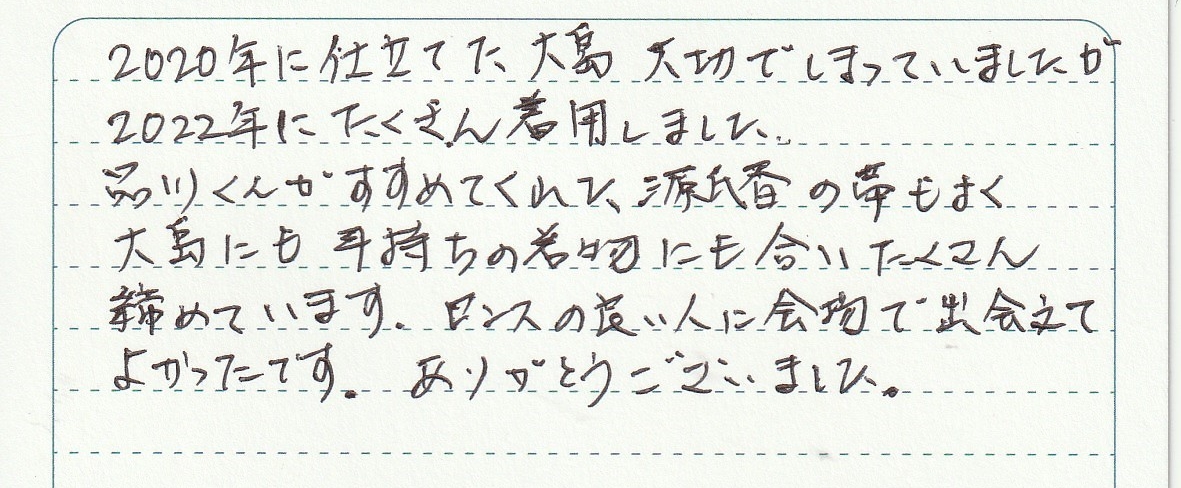 2020年に仕立てた大島 大切でしまっていましたが
2022年にたくさん着用しました。
品川くんがすすめてくれた、源氏香の帯もよく
大島にも手持ちの着物にも合いたくさん
締めています。センスの良い人に会場で出会えて
よかったです。ありがとうございました。